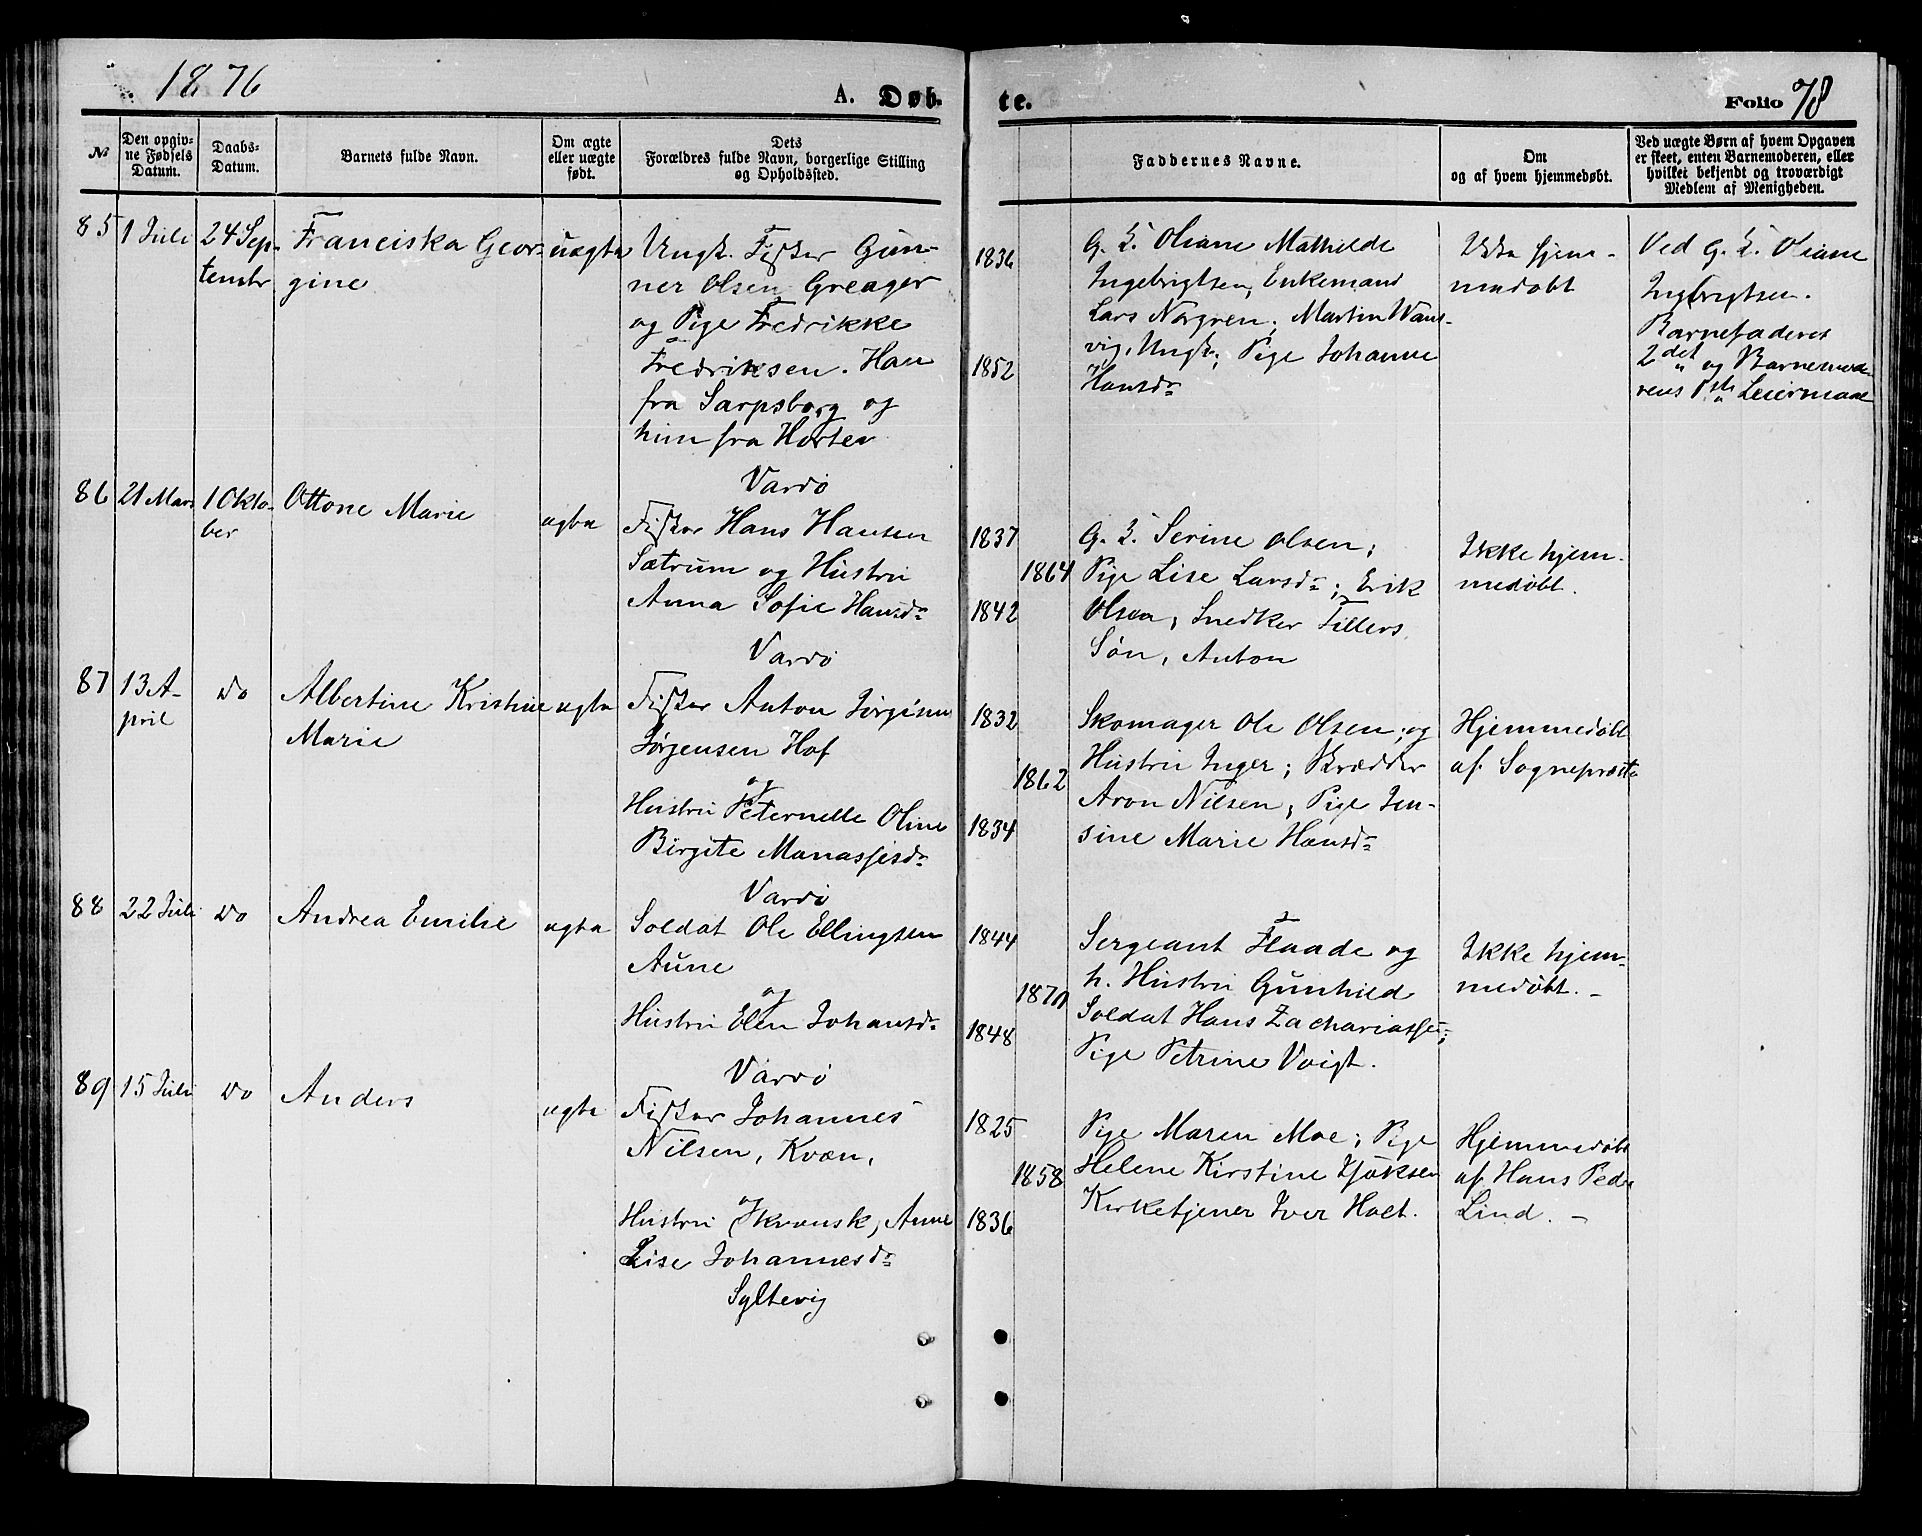 1876
A. Døb-
te.
Folio 78
№
Den opgiv-
ne Fødsels
Datum.
Daabs-
Datum.
Barnets fulde Navn.
Om ægte
eller uægte
født.
Dets
Forældres fulde Navn, borgerlige Stilling
og Opholdssted.
Faddernes Navne.
Om
og af hvem hjemmedøbt.
Ved uægte Børn af hvem Opgaven
er skeet, enten Barnemoderen, eller
hvilket bekjendt og troværdigt
Medlem af Menigheden.
85
1 Juli
24 Sep-
tembr
Franciska Geor-
gine
uægte
Ungk. Fisker Gun-
ner Olsen Greager
og Pige Fredrikke
Fredriksen. Han
fra Sarpsborg og
hun fra Horten
1836
1852
G. K. Oliane Mathilde
Ingebrigtsen, Enkemand
Lars Norgren; Martin Wans-
vig, Ungk; Pige Johanne
Hansdr
Ikke hjem-
medøbt
Ved G. K. Oliane
Ingbrigtsen.
Barnefaderes
2det og Barnemode-
rens 1ste Leiermaal
86
21 Mars
1 Okto-
ber
Ottone Marie
ægte
Vardø
Fisker Hans Hansen
Sætrum og Hustru
Anna Sofie Hansdr
1837
1864
1842
G. K. Serine Olsen;
Pige Lise Larsdr; Erik
Olsen, Snedker Tillers
Søn, Anton
Ikke hjem-
medøbt.
87
13 A-
pril
do
Albertine Kristine
Marie
ægte
Vardø
Fisker Anton Jørginus
Jørgensen Hof
og
Hustru Peternelle Oline
Birgite Manassesdr
1832
1862
1834
Skomager Ole Olsen; og
Hustru Inger; Skrædder
Aron Nilsen; Pige Jen-
sine Marie Hansdr
Hjemmedøbt
af Sognepræst
88
22 Juli
do
Andrea Emilie
ægte
Vardø
Soldat Ole Ellingsen
Aune
og
Hustru Elen Johansdr
1844
1870
1848
Sergeant Flaade og
h. Hustru Gunhild
Soldat Hans Zachariassen;
Pige Petrine Voigt.
Ikke hjem-
medøbt. –
89
15 Juli
do
Anders
ægte
Vardø
Fisker Johannes
Nilsen, Kvæn,
og
Hustru (kvænsk) Anne
Lise Johannesdr
Syltevig
1825
1858
1836
Pige Maren Moe; Pige
Helene Kirstine
Kirketjener Iver Holt.
Hjemmedøbt
af Hans Peder
Lind. –